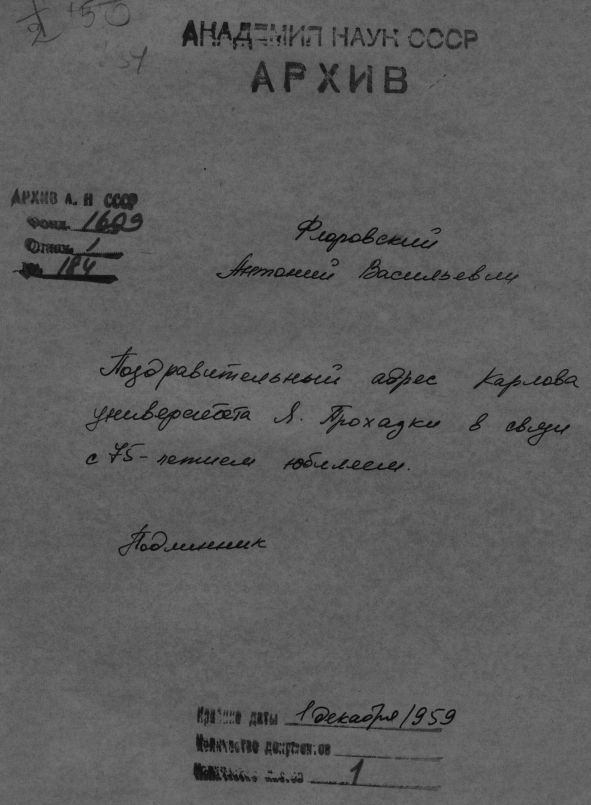 1
2
50
АКАДЕМИЯ НАУК СССР
АРХИВ
АРХИВ А. Н СССР
Фонд. 1609
Опись 1
№ 184
Флоровский
Антоний Васильевич
Поздравительный адрес Карлова
университета Я. Прохадки в связи
с 75-летием юбилеем.
Подлинник
Крайние даты 1 декабря 1959
Количество документов
Количество листов 1